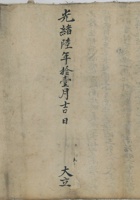 光緒陸年拾壹月吉日
大立